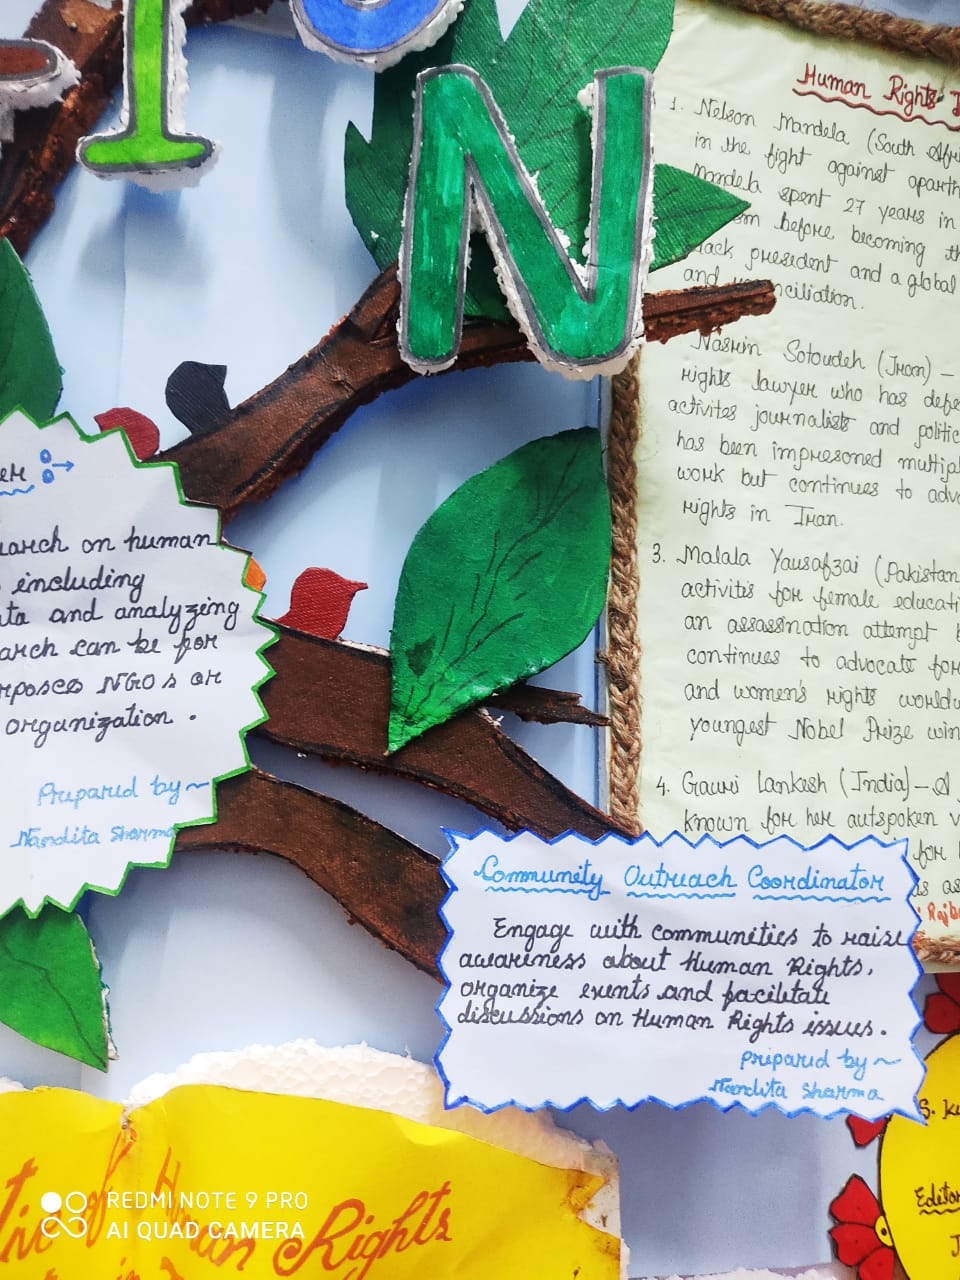 I
N
Human Rights
1. Nelson Mandela (South Afri
in the fight against aparth
Mandela spent 27 years in
before becoming th
president and a global
and
Nasrin Sotoudeh (Iran) –
rights lawyer who has defe
activites journalists and politic
has been impresoned multipl
work but continues to advo
rights in Iran.
3. Malala Yausafzai (Pakistan
activits for female educati
an assassination attempt b
continues to advocate for
and women's rights worldw
youngest Nobel Prize win
4. Gauri Lankesh (India) – A
known for her autspoken v
for
as
arch on human
including
ta and analyzing
arch can be for
rposes NGO s or
organization .
Prepared by ~
Nandita Sharma
Community Outreach Coordinator
Engage with communities to raise
awareness about Human Rights,
organize events and facilitate
discussions on Human Rights issues.
Prepared by ~
Nandita Sharma
of Human Rights
S. Ku
Editor
J
REDMI NOTE 9 PRO
AI QUAD CAMERA